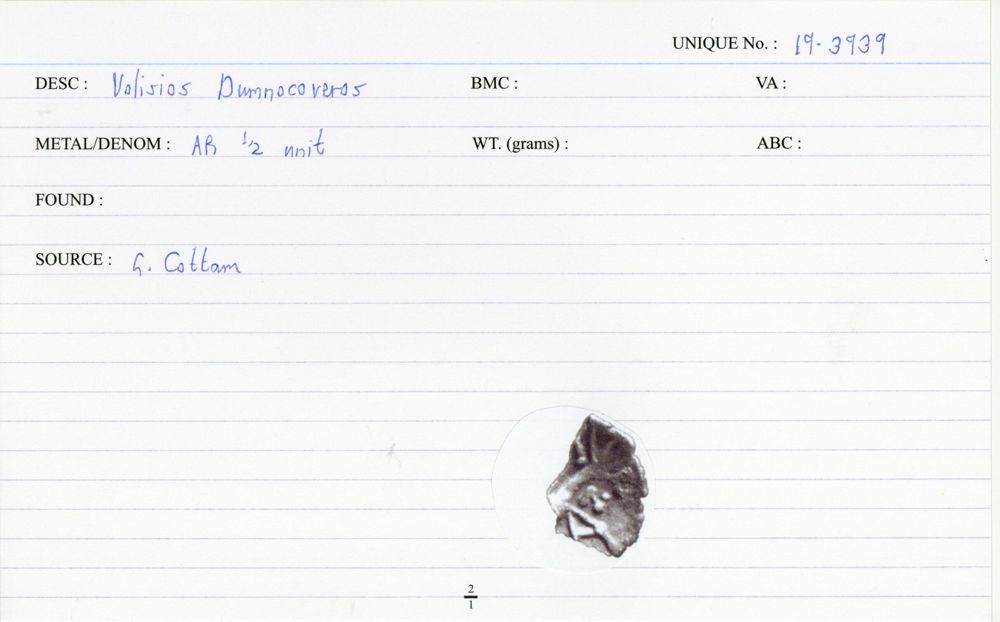 UNIQUE No. : 19-3939
DESC : Volisios Dumnocoveros BMC : VA :
METAL/DENOM : AR 1/2 unit WT. (grams) : ABC :
FOUND :
SOURCE : G. Cottam
2
1